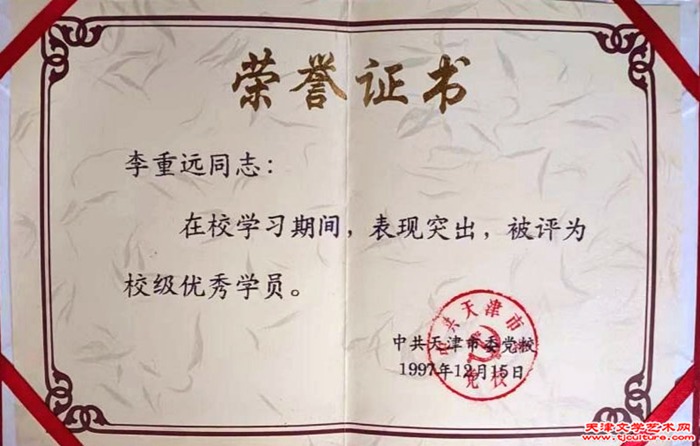 荣誉证书
李重远同志：
在校学习期间，表现突出，被评为
校级优秀学员。
中共天津市委党校
1997年12月15日
中共天津市委党校
天津文学艺术网
www.tjculture.com